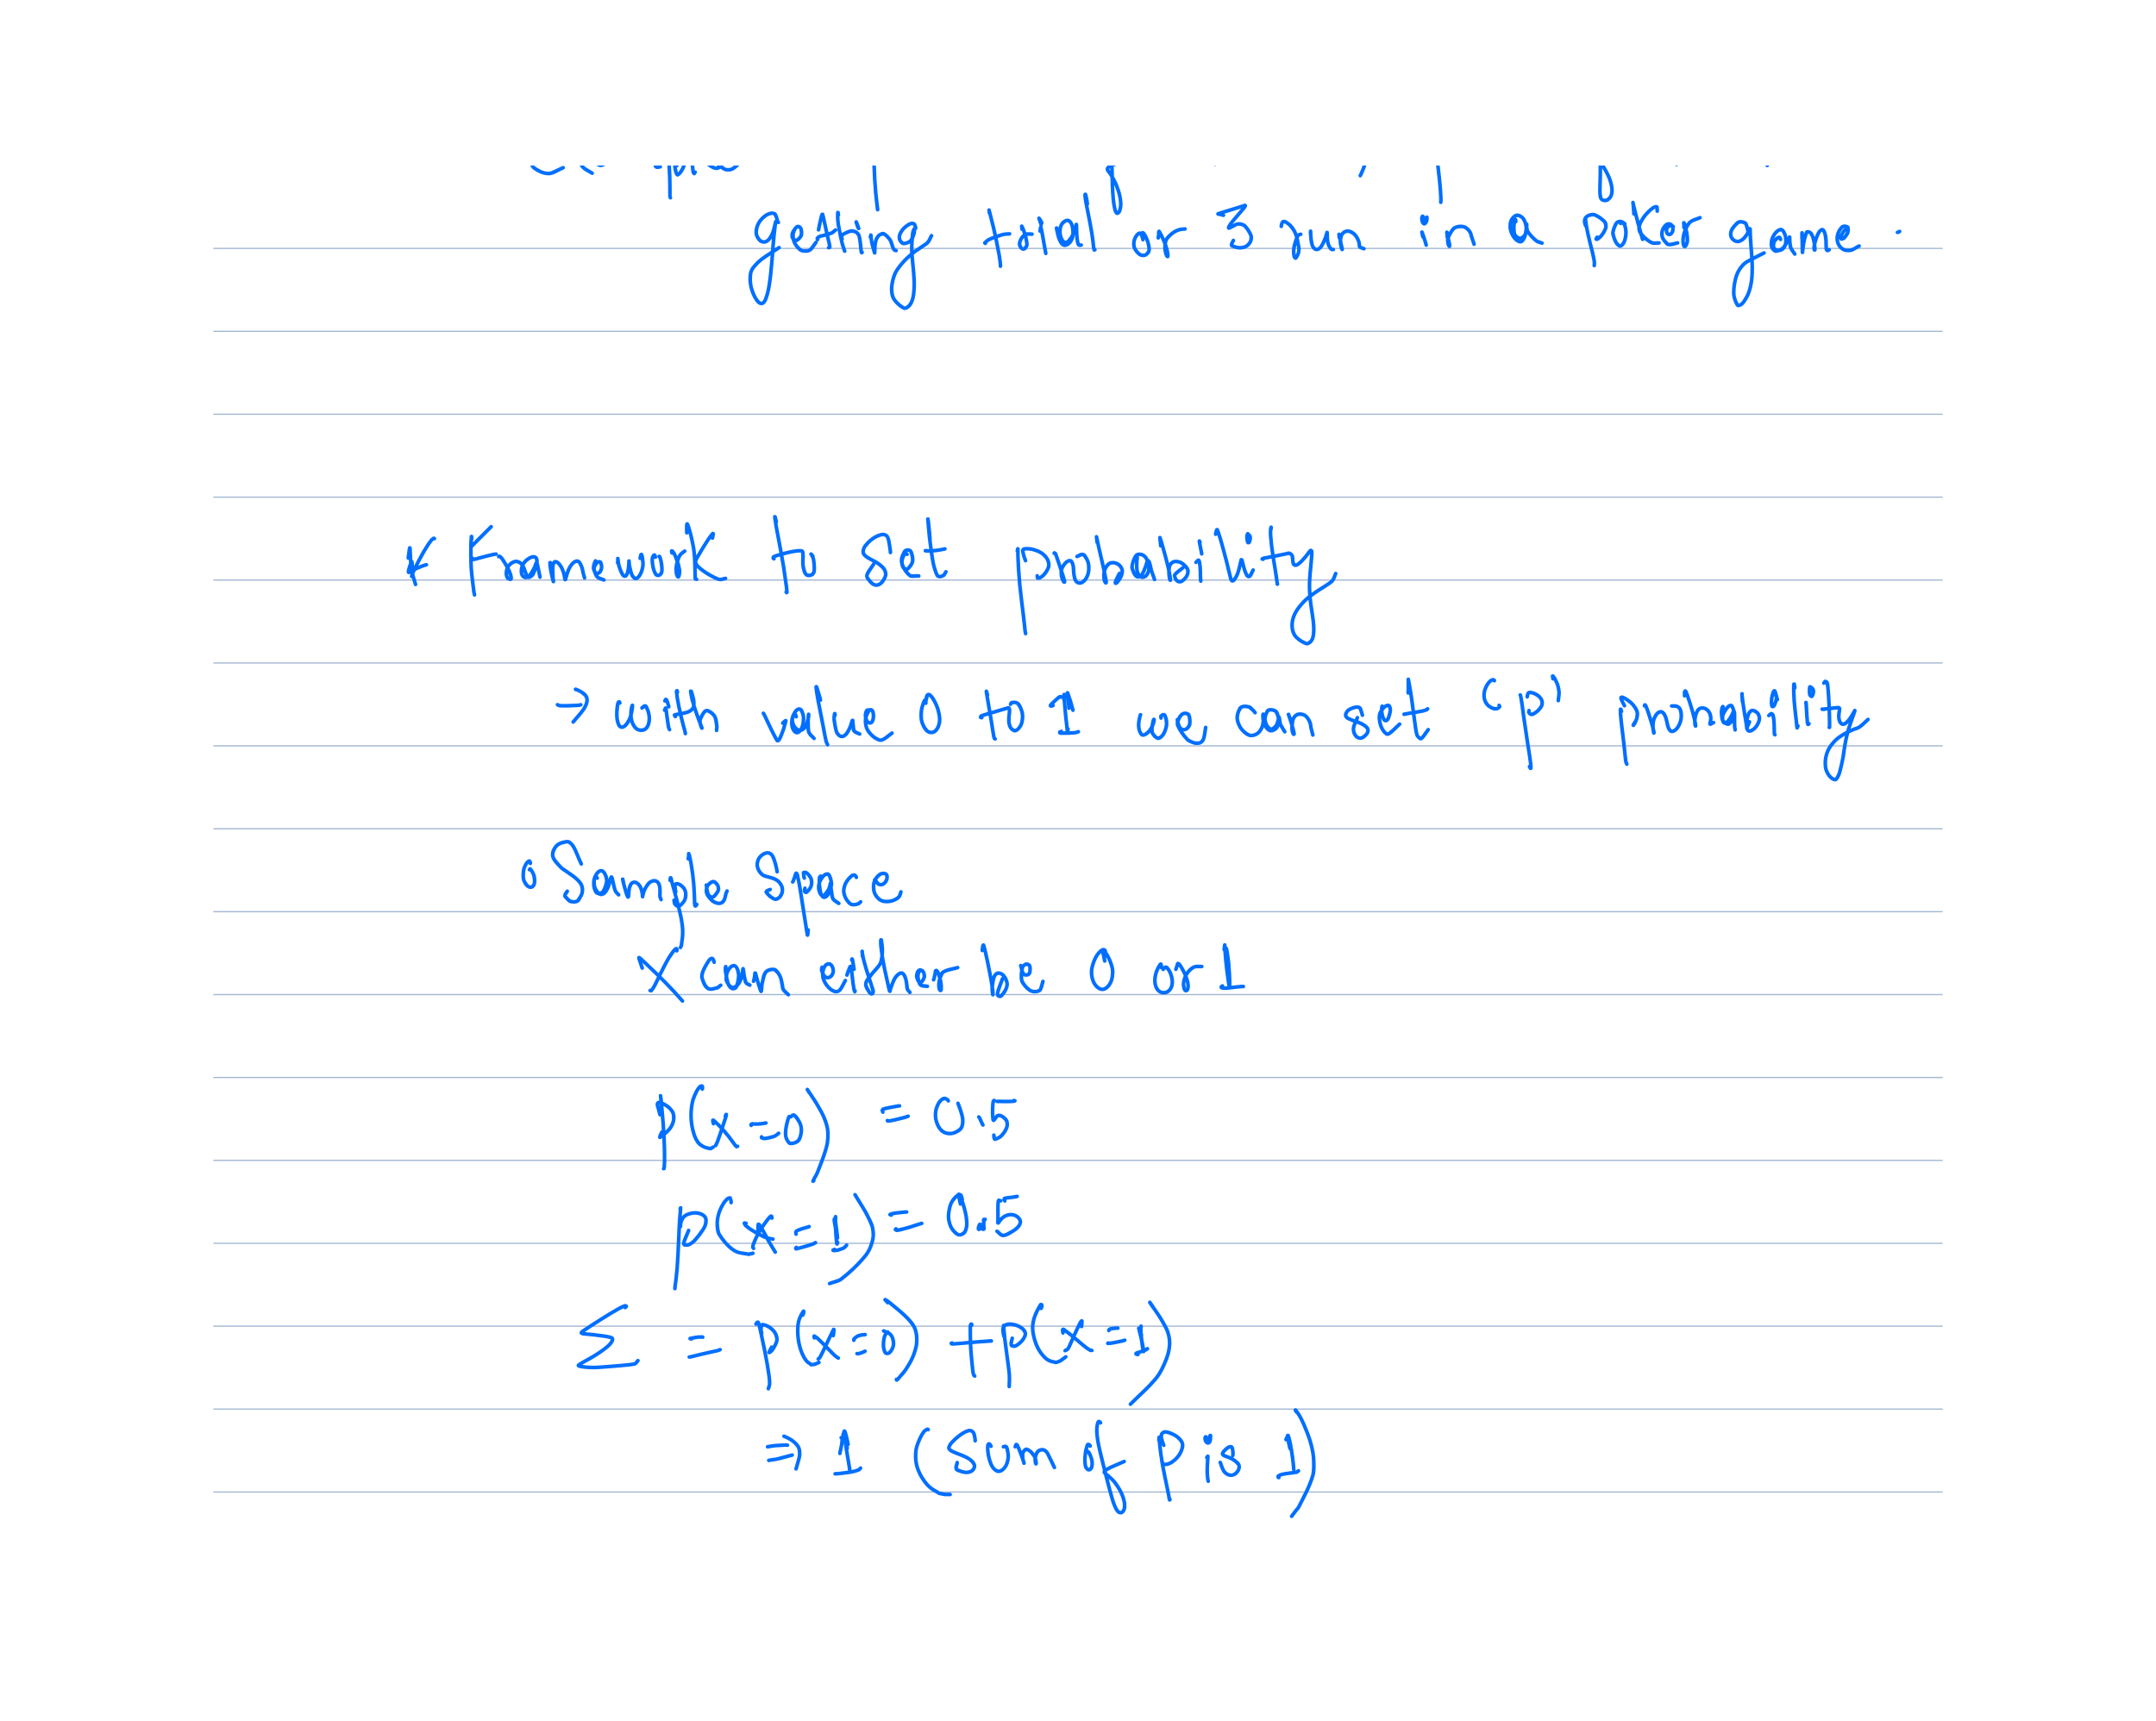 getting trial or 3 run in a Poker game.
* Framework to set probability
→ with value 0 to 1 we can set (P) probability
° Sample Space
X Can either be 0 or 1
P(x=0) = 0.5
P(x=1) = 0.5
Σ = P(x=0) + P(x=1)
⇒ 1 (Sum of P is 1)